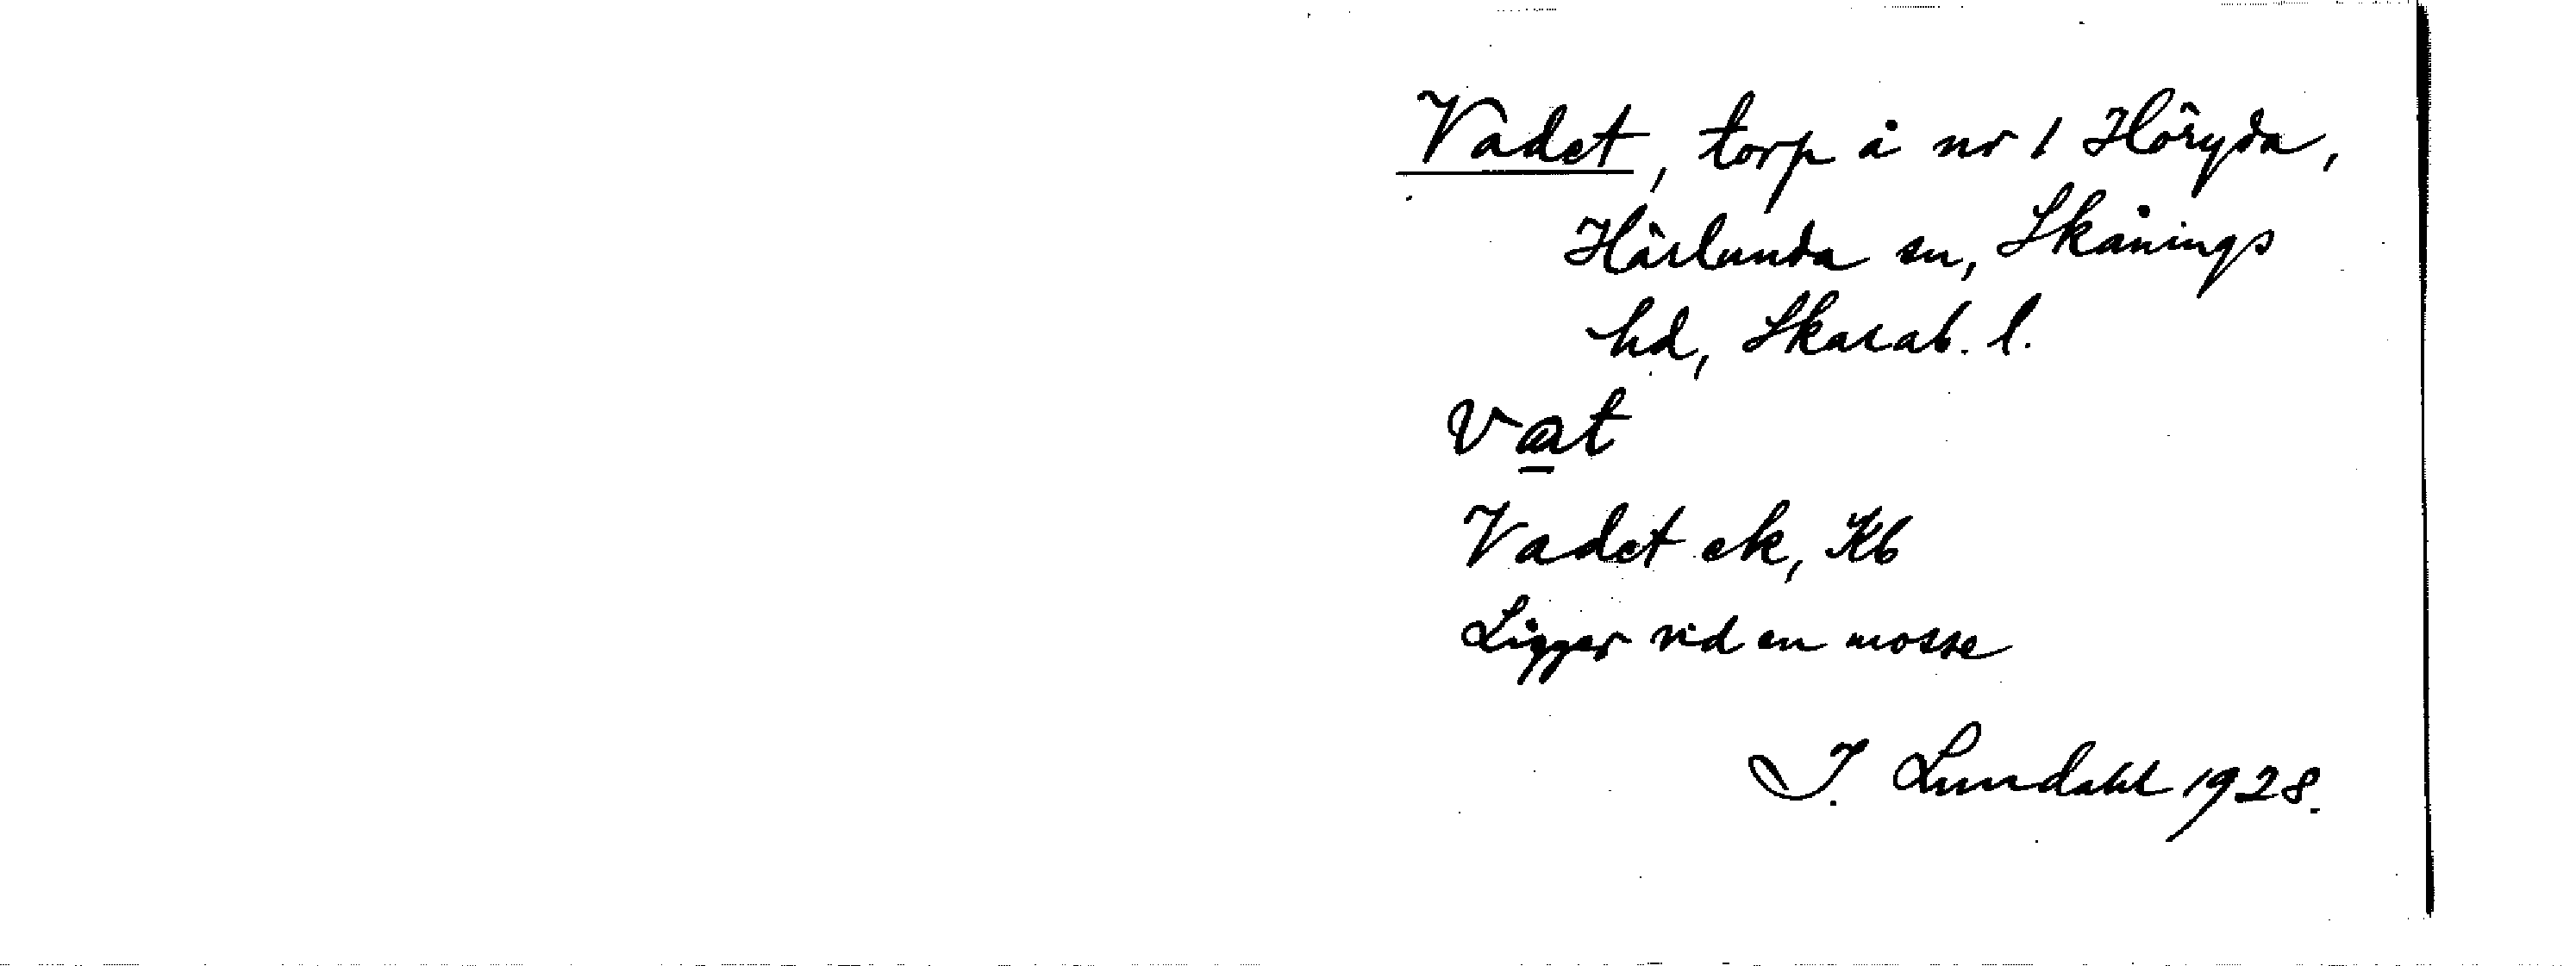 Vadet, torp å nr 1 Höryda,
Härlunda sn, Skånings
hd, Skarab. l.
vat
Vadet ek, Kb
Ligger vid en mosse
I. Lundahl 1928.